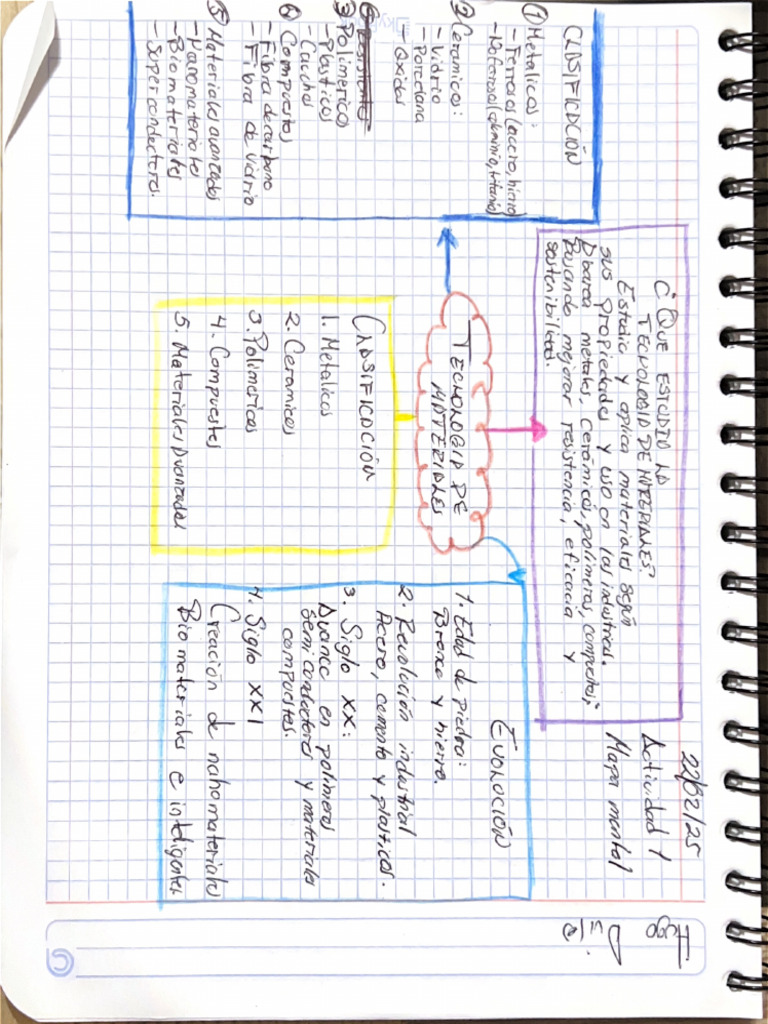 22/02/25
Actividad 1
Mapa mental
¿Que estudio la
Tecnologia de materiales?
Estudio y aplica materiales según
sus propiedades y uso en las industrias.
Abarca metales, cerámicos, polimeros, compuestos,
Bujando mejorar resistencia, eficacia y
sostenibilidad.
Clasificación
① Metalicos:
- Ferrosos (acero, hierro)
- No ferrosos (aluminio, titanio)
② Ceramicos:
- Vidrio
- Porcelana
- Oxidos
③ Polimericos
- Plasticos
- Caucho
④ Compuestos
- Fibra de carbono
- Fibra de vidrio
⑤ Materiales avanzados
- Nanomateriales
- Biomateriales
- Superconductores.
Tecnologia de
Materiales
Clasificación
1. Metalicos
2. Ceramicos
3. Polimericos
4. Compuestos
5. Materiales Avanzados
Evolución
1. Edad de piedra:
Bronce y hierro.
2. Revolución industrial
Acero, cemento y plasticos.
3. Siglo XX:
Avance en polimeros
semiconductores y materiales
compuestos.
4. Siglo XXI
Creación de nanomateriales
Biomateriales e inteligentes